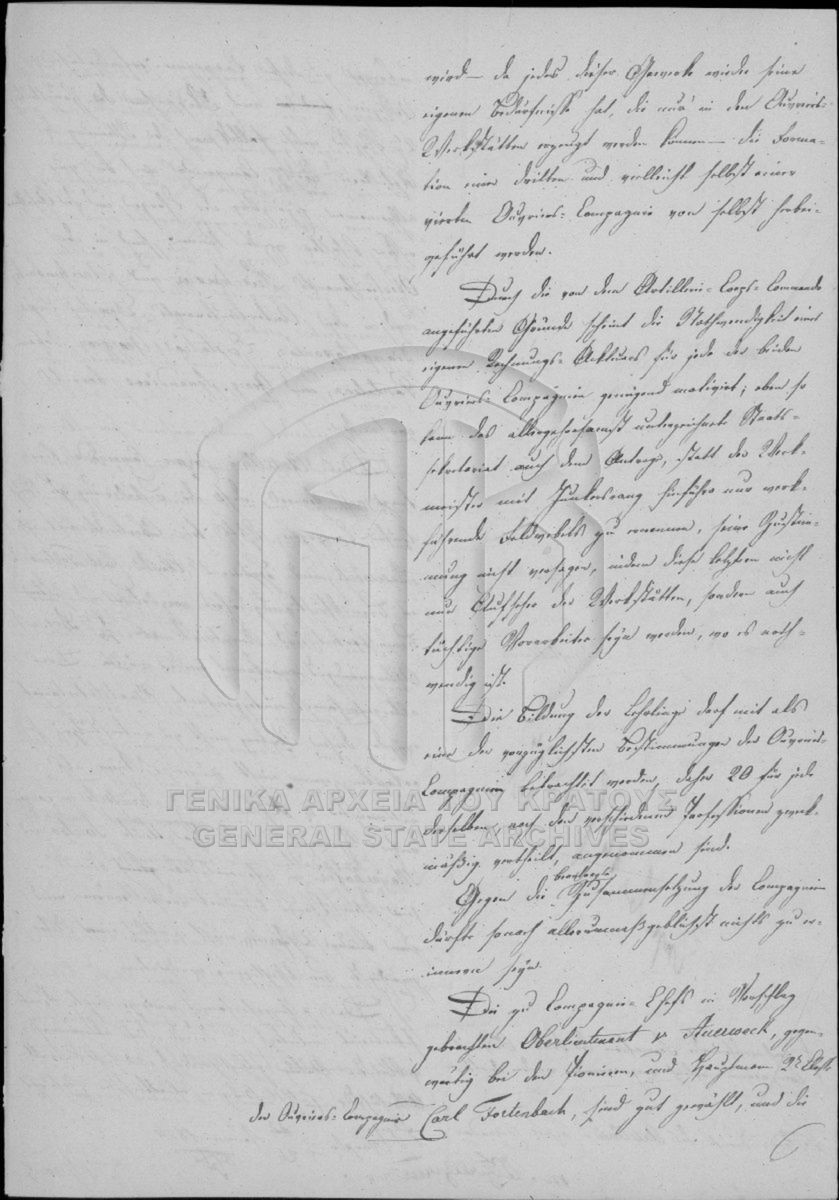 wird – da jedes dieser Gewerke wieder seine
eigenen Bedürfnisse hat, die nur in den Ouvriers-
Werkstätten erzeugt werden können – die Forma-
tion einer dritten und vielleicht selbst einer
vierten Ouvriers-Compagnie von selbst herbei-
geführt werden.
Durch die von dem Artillerie-Corps-Commando
angeführten Gründe scheint die Nothwendigkeit eines
eigenen Rechnungs-Aktuars für jede der beiden
Ouvriers-Compagnien genügend motivirt; eben so
kann das allergehorsamst unterzeichnete Staats-
sekretariat auch dem Antrage, statt der Werk-
meister mit Junkersrang hinführo nur werk-
führende Feldwebels zu ernennen, seine Zustim-
mung nicht versagen, indem diese letztern nicht
nur Aufseher der Werkstätten, sondern auch
tüchtige Vorarbeiter seyn werden, wo es noth-
wendig ist.
Die Bildung der Lehrlinge darf mit als
eine der vorzüglichsten Bestimmungen der Ouvriers-
Compagnien betrachtet werden, daher 20 für jede
derselben, nach den verschiedenen Professionen zweck-
mäßig vertheilt, angenommen sind.
beantragte
Gegen die Zusammensetzung der Compagnien
dürfte sonach allerunmaßgeblichst nichts zu er-
innern seyn.
Die zu Compagnie-Chefs in Vorschlag
gebrachten Oberlieutenant v. Auerweck, gegen-
wärtig bei den Pionieren, und Hauptmann 2r Classe
der Ouvriers-Compagnie Carl Fortenbach, sind gut gewählt, und die
ΓΕΝΙΚΑ ΑΡΧΕΙΑ ΤΟΥ ΚΡΑΤΟΥΣ
GENERAL STATE ARCHIVES